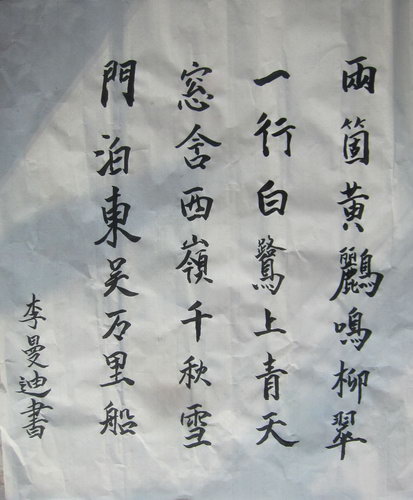 兩箇黃鸝鳴柳翠
一行白鷺上青天
窓含西嶺千秋雪
門泊東吳万里船
李曼迪書